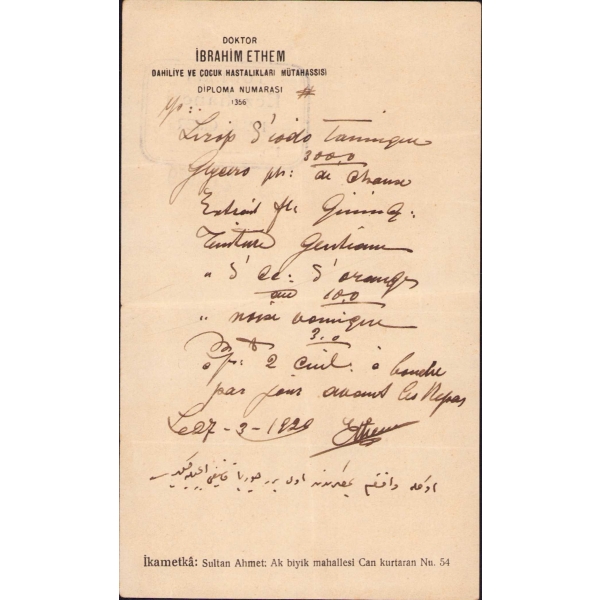 DOKTOR
İBRAHİM ETHEM
DAHİLİYE VE ÇOCUK HASTALIKLARI MÜTAHASSISI
DİPLOMA NUMARASI
1356
Sirop d'iodo Tannique
300,0
Glycero ph: de chaux
Extrait fl: Quinq:
Teinture Gentiane
" d'ec: d'oranges
aa 10,0
" noix vomique
3,0
2 cuil: à bouche
par jour avant les Repas
Le 27-3-1929 Ethem
İkametkâ: Sultan Ahmet: Ak bıyık mahallesi Can kurtaran Nu. 54